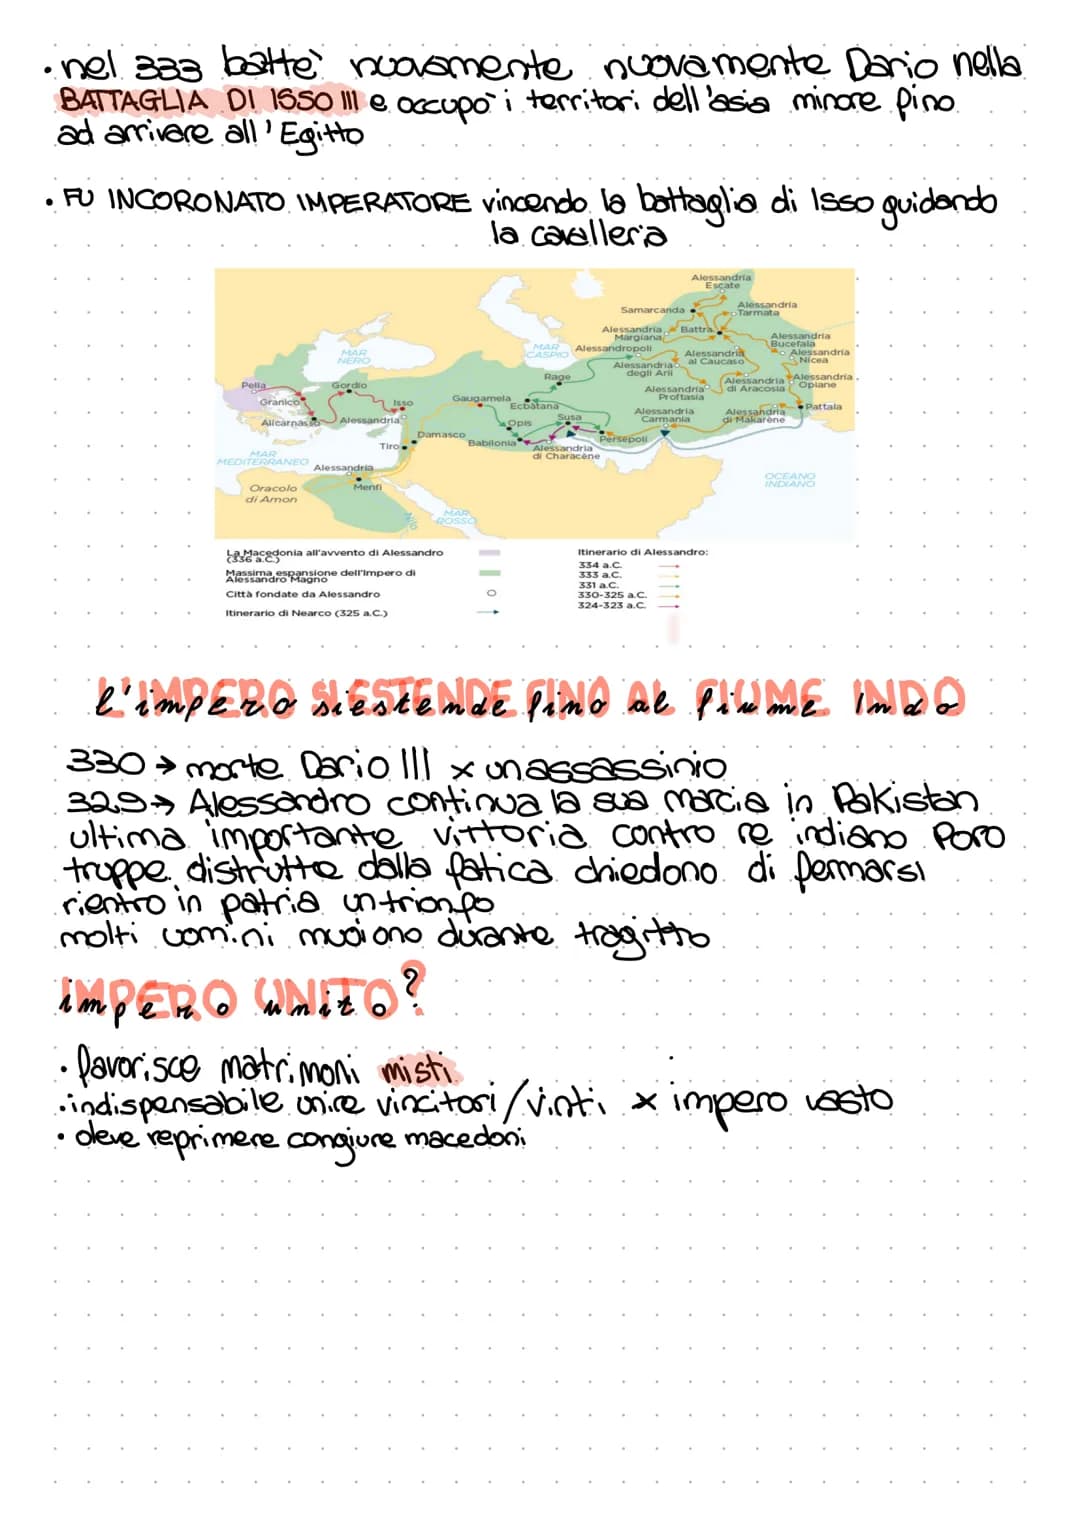 • nel 333 battè nuovamente nuovamente Dario nella
BATTAGLIA DI ISSO III e occupò i territori dell'asia minore fino
ad arrivare all'Egitto
• FU INCORONATO IMPERATORE vincendo la battaglia di Isso guidando
la cavalleria
Alessandria
Escate
Samarcanda
Alessandria
Tarmata
Alessandria
Margiana
Battra
Alessandria
Bucefala
MAR
NERO
MAR
CASPIO
Alessandropoli
Alessandria
al Caucaso
Alessandria
Nicea
Alessandria
degli Arii
Pella
Gordio
Rage
Alessandria
Proftasia
Alessandria
di Aracosia
Alessandria
Opiane
Granico
Isso
Gaugamela
Ecbatana
Alicarnasso
Alessandria
Opis
Susa
Alessandria
Carmania
Alessandria
di Makarène
Pattala
Tiro
Damasco
Babilonia
Persepoli
MAR
MEDITERRANEO
Alessandria
Alessandria
di Characène
Oracolo
di Amon
Menfi
OCEANO
INDIANO
Nilo
MAR
ROSSO
La Macedonia all'avvento di Alessandro
(336 a.C.)
Massima espansione dell'Impero di
Alessandro Magno
Città fondate da Alessandro
Itinerario di Nearco (325 a.C.)
Itinerario di Alessandro:
334 a.C.
333 a.C.
331 a.C.
330-325 a.C.
324-323 a.C.
l'IMPERO SI ESTENDE FINO AL FIUME INDO
330 → morte Dario III x un assassinio
329 → Alessandro continua la sua marcia in Pakistan
ultima importante vittoria contro re indiano Poro
truppe distrutte dalla fatica chiedono di fermarsi
rientro in patria un trionfo
molti uomini muoiono durante tragitto
IMPERO UNITO?
• favorisce matrimoni misti
• indispensabile unire vincitori/vinti x impero vasto
• deve reprimere congiure macedoni